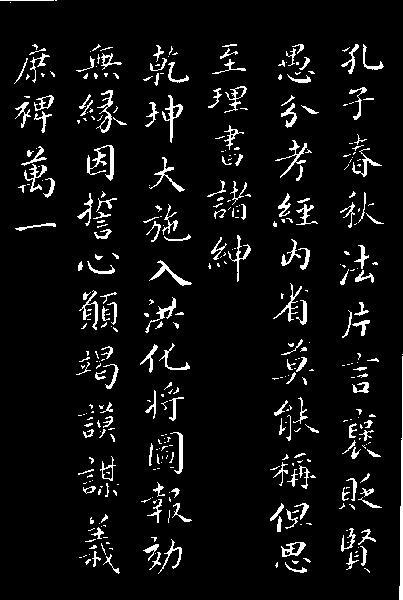 孔子春秋法片言襃貶賢
愚分考經内省莫能稱但思
至理書諸紳
乾坤大施入洪化將圖報効
無緣因誓心願竭謨謀義
庶裨萬一